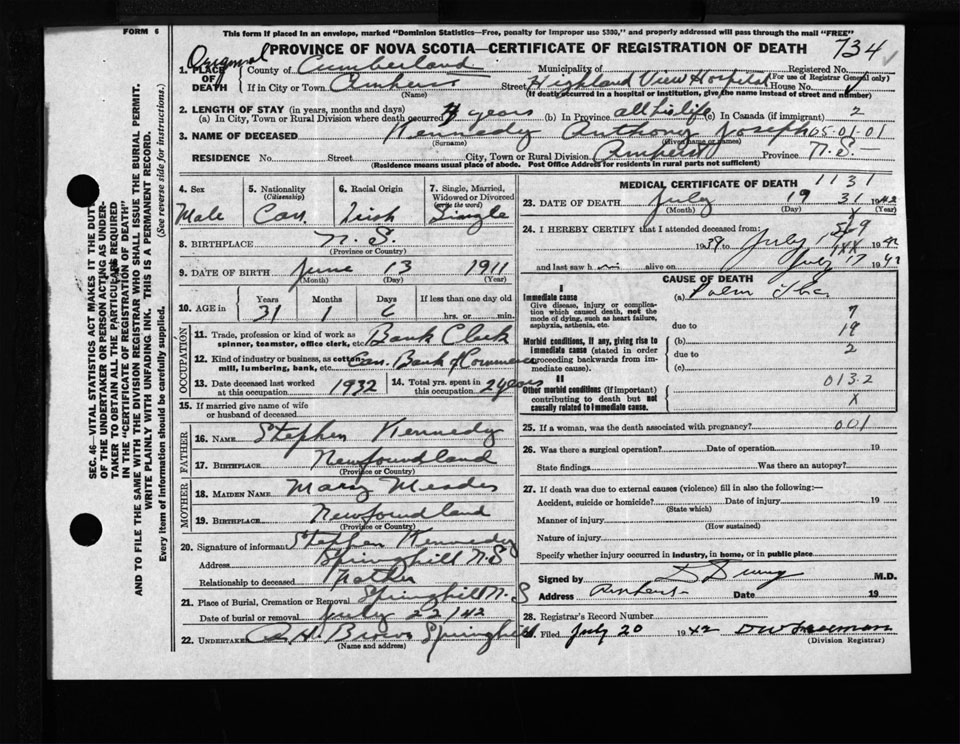 FORM 6
This form if placed in an envelope, marked "Dominion Statistics—Free, penalty for improper use $300," and properly addressed will pass through the mail "FREE"
PROVINCE OF NOVA SCOTIA—CERTIFICATE OF REGISTRATION OF DEATH
734
Original
1. PLACE OF DEATH
County of Cumberland Municipality of Registered No.
(For use of Registrar General only)
If in City or Town Amherst Street Highland View Hospital House No.
(Name) (If death occurred in a hospital or institution, give the name instead of street and number)
2. LENGTH OF STAY (in years, months and days)
(a) In City, Town or Rural Division where death occurred years (b) In Province all his life (c) In Canada (if immigrant) 2
3. NAME OF DECEASED Kennedy Anthony Joseph 05-01-01
(Surname) (Given name or names)
RESIDENCE No. Street City, Town or Rural Division Amherst Province N.S.
(Residence means usual place of abode. Post Office Address for residents in rural parts not sufficient)
4. Sex
Male
5. Nationality
(Citizenship)
Can.
6. Racial Origin
Irish
7. Single, Married, Widowed or Divorced
(write the word)
Single
8. BIRTHPLACE N.S.
(Province or Country)
9. DATE OF BIRTH June 13 1911
(Month) (Day) (Year)
10. AGE Years Months Days If less than one day old
31 1 6 hrs. or min.
OCCUPATION
11. Trade, profession or kind of work as spinner, teamster, office clerk, etc. Bank Clerk
12. Kind of industry or business, as cotton mill, lumbering, bank, etc. Can. Bank of Commerce
13. Date deceased last worked at this occupation 1932
14. Total yrs. spent in this occupation 2 years
15. If married give name of wife or husband of deceased
FATHER
16. NAME Stephen Kennedy
17. BIRTHPLACE Newfoundland
(Province or Country)
MOTHER
18. MAIDEN NAME Mary
19. BIRTHPLACE Newfoundland
(Province or Country)
20. Signature of informant Stephen Kennedy
Address Springhill N.S
Relationship to deceased Father
21. Place of Burial, Cremation or Removal Springhill N.S
Date of burial or removal July 22/42
22. UNDERTAKER Brown Springhill
(Name and address)
MEDICAL CERTIFICATE OF DEATH 1131
23. DATE OF DEATH July 19 31 1942
(Month) (Day) (Year)
24. I HEREBY CERTIFY that I attended deceased from:
1939 to July 1942
and last saw h alive on July 17 1942
CAUSE OF DEATH
I
Immediate cause
Give disease, injury or complication which caused death, not the mode of dying, such as heart failure, asphyxia, asthenia, etc.
(a) Pulm Tbc
7
due to 19
Morbid conditions, if any, giving rise to immediate cause (stated in order proceeding backwards from immediate cause).
(b)
due to 2
(c)
II
Other morbid conditions (if important) contributing to death but not causally related to immediate cause.
013.2
X
25. If a woman, was the death associated with pregnancy? 001
26. Was there a surgical operation? Date of operation 19
State findings Was there an autopsy?
27. If death was due to external causes (violence) fill in also the following:—
Accident, suicide or homicide? Date of injury 19
(State which)
Manner of injury
(How sustained)
Nature of injury
Specify whether injury occurred in industry, in home, or in public place
Signed by M.D.
Address Amherst Date 19
28. Registrar's Record Number
Filed July 20 1942
(Division Registrar)
SEC. 46—VITAL STATISTICS ACT MAKES IT THE DUTY OF THE UNDERTAKER OR PERSON ACTING AS UNDERTAKER TO OBTAIN ALL THE PARTICULARS REQUIRED IN THE "CERTIFICATE OF REGISTRATION OF DEATH"
AND TO FILE THE SAME WITH THE DIVISION REGISTRAR WHO SHALL ISSUE THE BURIAL PERMIT.
WRITE PLAINLY WITH UNFADING INK. THIS IS A PERMANENT RECORD.
Every item of information should be carefully supplied. (See reverse side for instructions.)